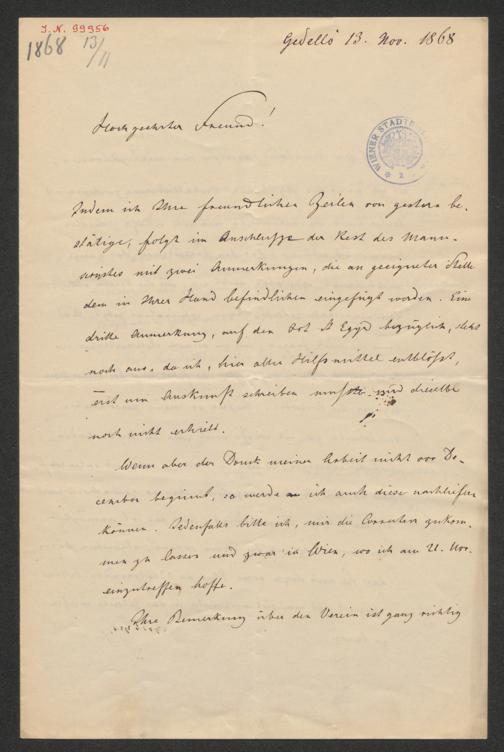 I. N. 99956
1868 13/11
Gedelló 13. Nov. 1868
WIENER STADT
Hochgeehrter Freund!
Indem ich Ihre freundlichen Zeilen von gestern be-
stätige, folgt im Anschlusse der Rest des Manu-
scriptes mit zwei Anmerkungen, die an geeigneter Stelle
dem in Ihrer Hand befindlichen eingefügt werden. Eine
dritte Anmerkung, auf den Ort St Egyd bezüglich, steht
noch aus, da ich, hier aller Hilfsmittel entblößt,
erst um Auskunft schreiben mußte und dieselbe
noch nicht erhielt.
Wenn aber der Druck meiner Arbeit nicht vor De-
cember beginnt, so werde ich auch diese nachliefern
können. Jedenfalls bitte ich, mir die Correctur zukom-
men zu lassen und zwar in Wien, wo ich am 21. Nov.
einzutreffen hoffe.
Ihre Bemerkung über den Verein ist ganz richtig